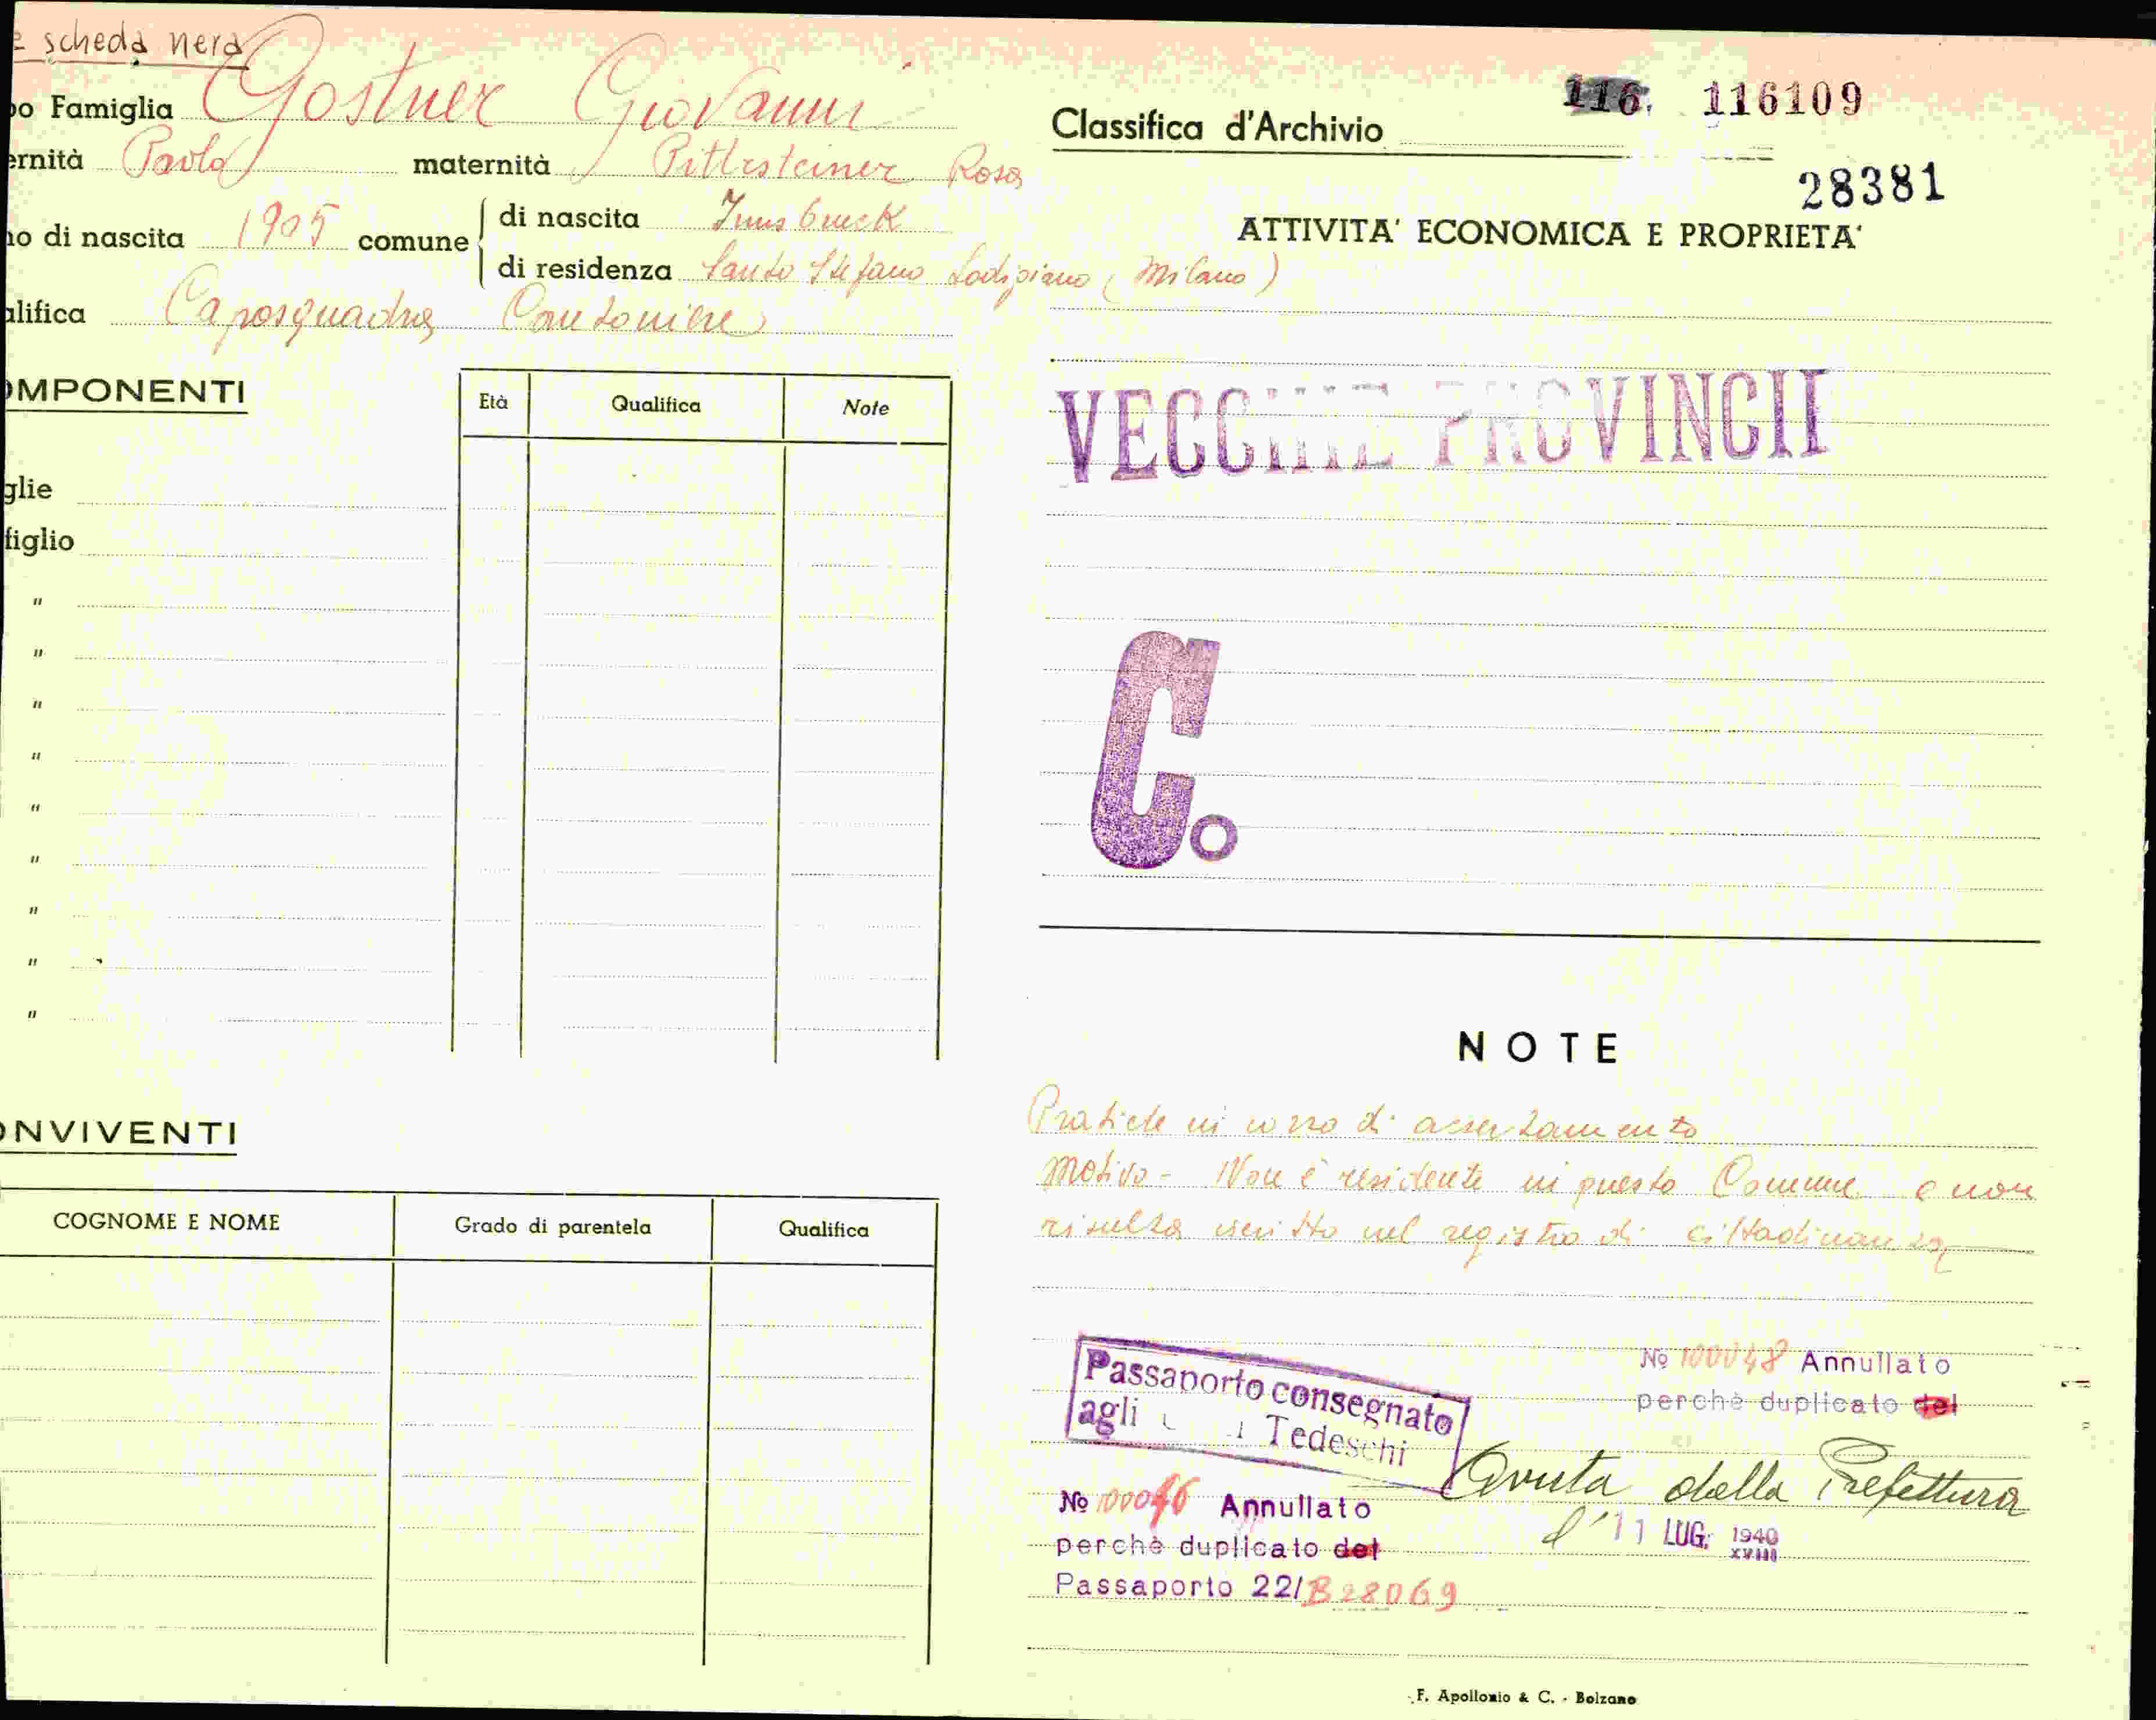 scheda nera
o Famiglia Gostner Giovanni
ernità Paolo maternità Rosa
o di nascita 1905 comune
di nascita Innsbruck
di residenza Santo Stefano Lodigiano (Milano)
alifica Caposquadra Cantoniere
Classifica d'Archivio 116. 116109
28381
ATTIVITA' ECONOMICA E PROPRIETA'
VECCHIE PROVINCIE
C.
OMPONENTI
Età Qualifica Note
glie
figlio
"
"
"
"
"
"
"
"
"
ONVIVENTI
COGNOME E NOME Grado di parentela Qualifica
NOTE
Pratiche in corso di accertamento
Motivo - Non è residente in questo Comune e non
risulta iscritto nel registro di cittadinanza
Passaporto consegnato
agli Tedeschi
No 100048 Annullato
perchè duplicato del
Avuta dalla Prefettura
l'11 LUG. 1940
XVIII
No 100046 Annullato
perchè duplicato del
Passaporto 22/B28069
F. Apollonio & C. - Bolzano